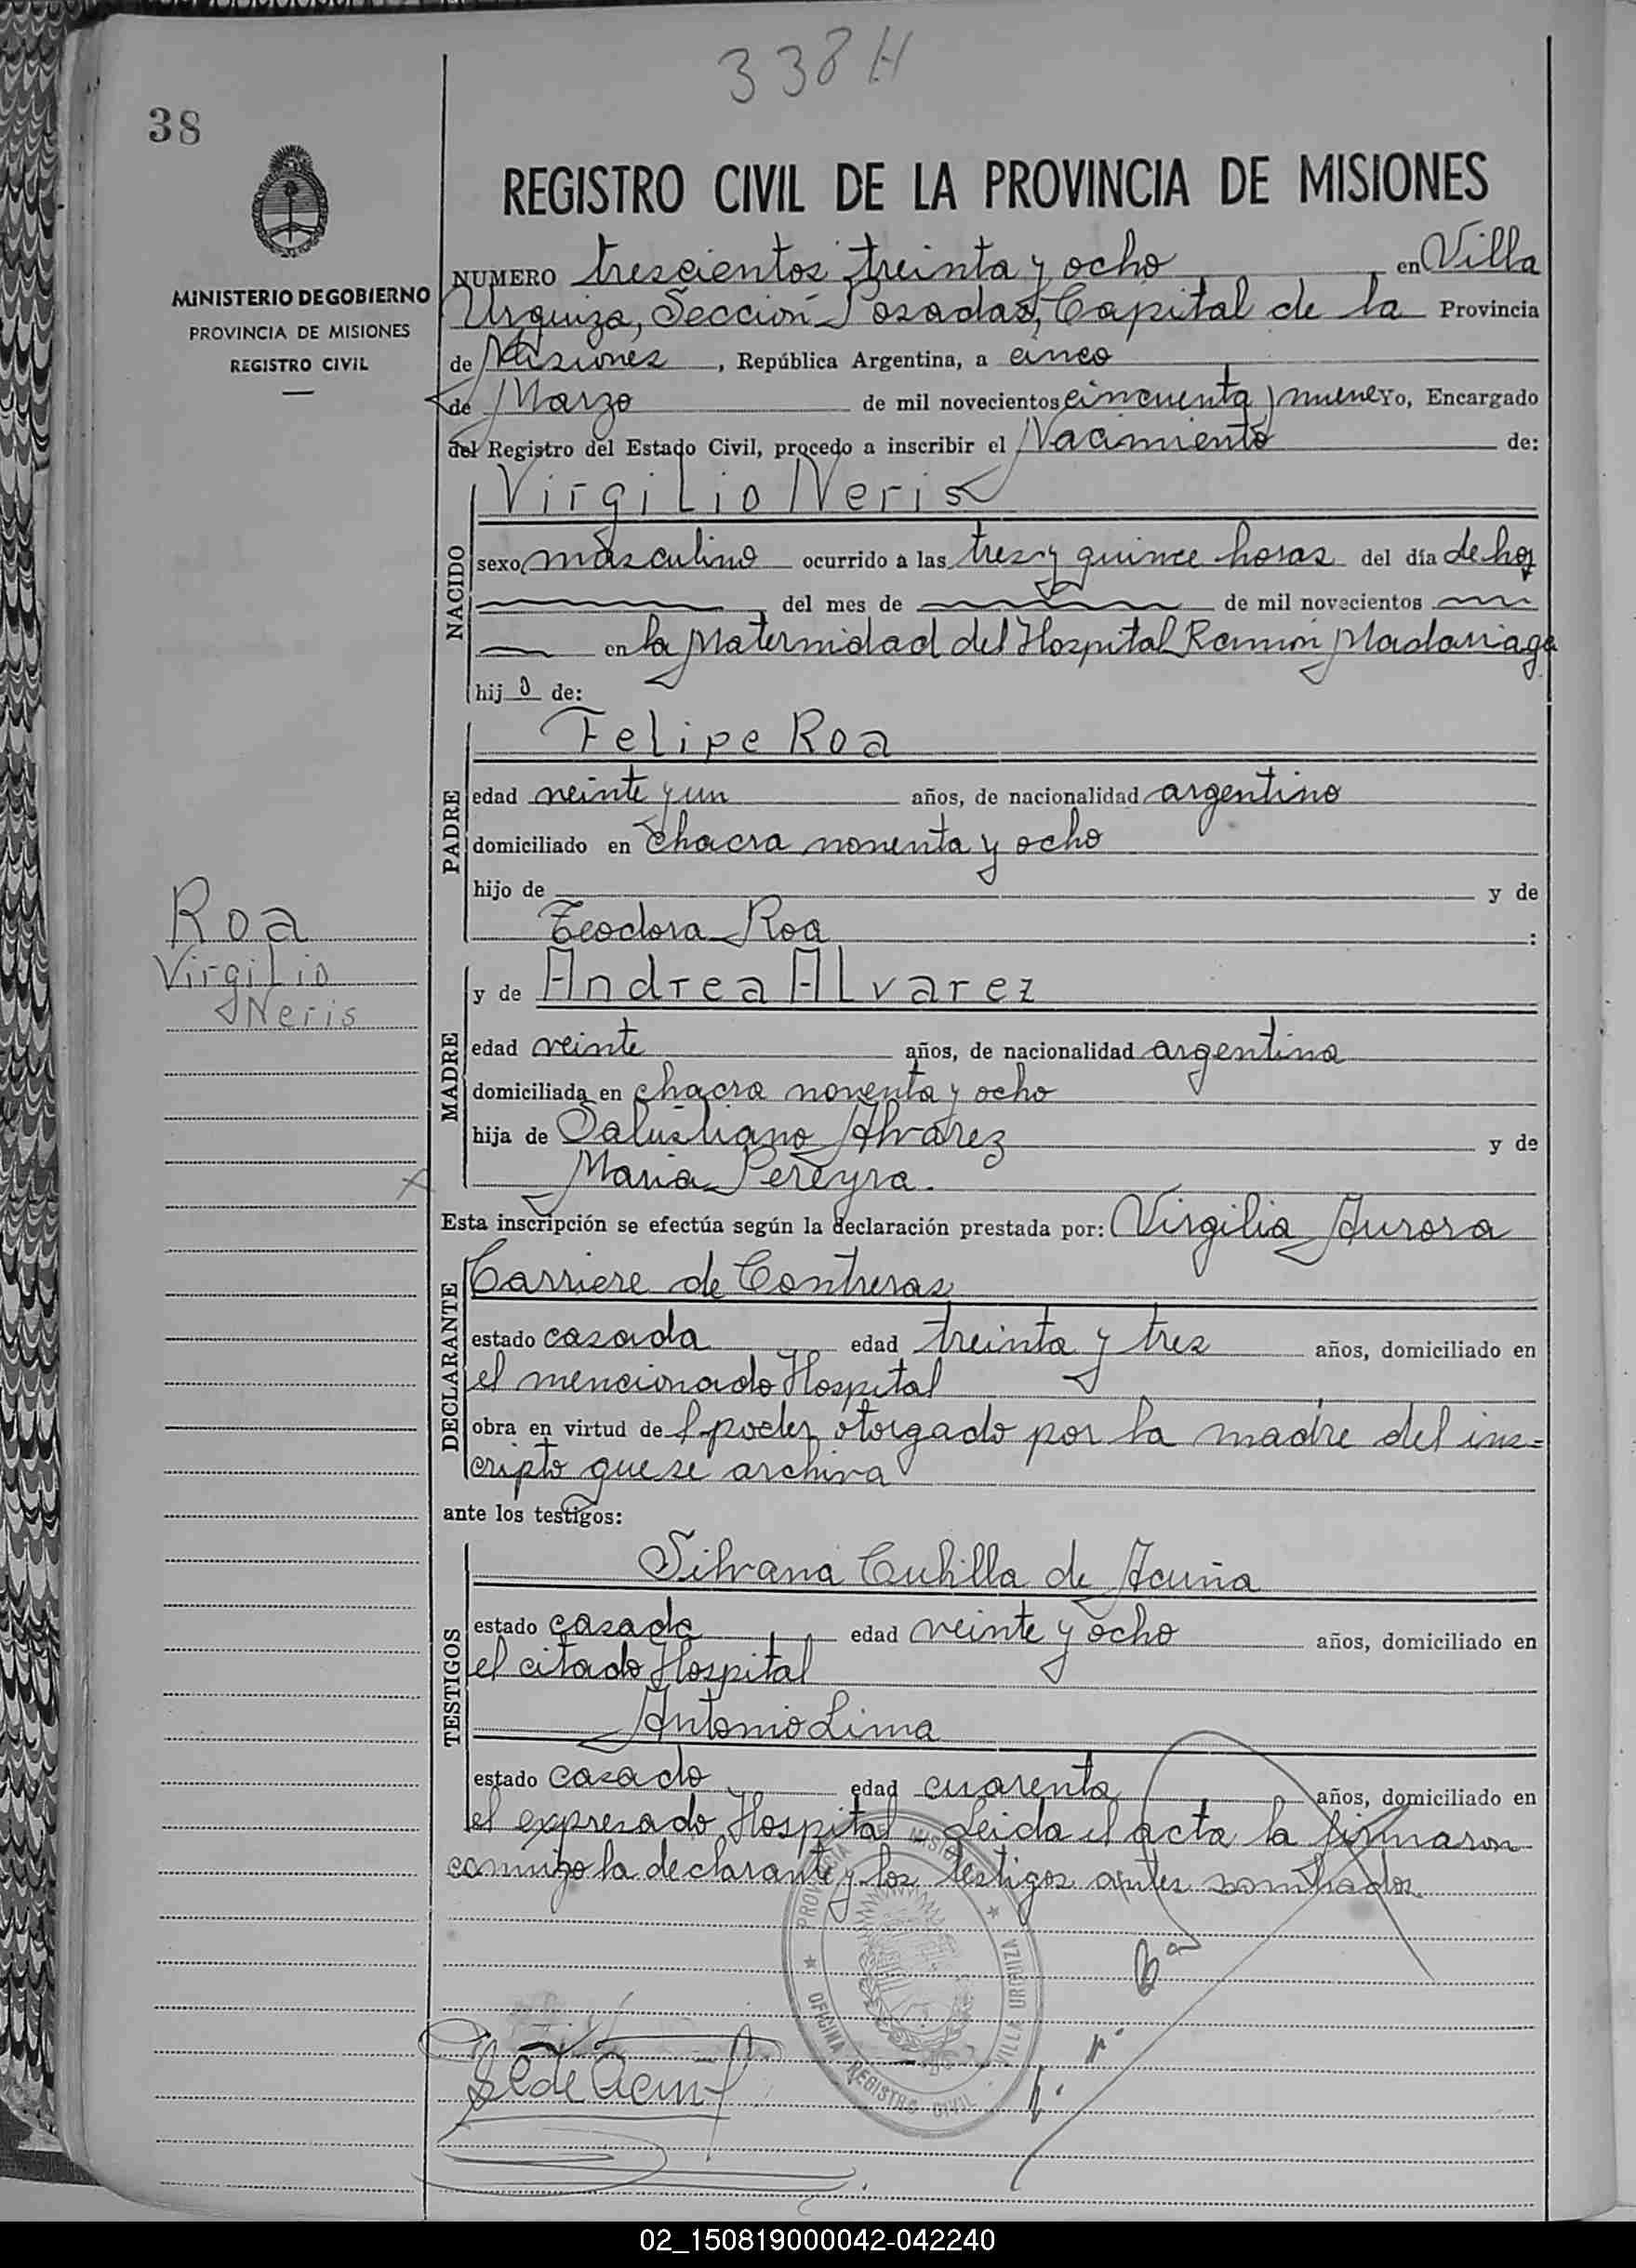 338 H
38
REGISTRO CIVIL DE LA PROVINCIA DE MISIONES
MINISTERIO DE GOBIERNO
PROVINCIA DE MISIONES
REGISTRO CIVIL
NUMERO trescientos treinta y ocho en Villa
Urquiza, Sección Posadas, Capital de la Provincia
de Misiones, República Argentina, a cinco
de Marzo de mil novecientos cincuenta y nueve Yo, Encargado
del Registro del Estado Civil, procedo a inscribir el Nacimiento de:
NACIDO
Virgilio Neris
sexo masculino ocurrido a las tres y quince horas del día de hoy
del mes de de mil novecientos
en la Maternidad del Hospital Ramón Madariaga
hijo de:
PADRE
Felipe Roa
edad veinte y un años, de nacionalidad argentino
domiciliado en chacra noventa y ocho
hijo de y de
Teodora Roa :
Roa
Virgilio
Neris
MADRE
y de Andrea Alvarez
edad veinte años, de nacionalidad argentina
domiciliada en chacra noventa y ocho
hija de Salustiano Alvarez y de
Maria Pereyra.
Esta inscripción se efectúa según la declaración prestada por: Virgilia Aurora
DECLARANTE
Carriere de Contreras
estado casada edad treinta y tres años, domiciliado en
el mencionado Hospital
obra en virtud del poder otorgado por la madre del ins=
cripto que se archiva
ante los testigos:
TESTIGOS
Silvana Cubilla de Acuña
estado casada edad veinte y ocho años, domiciliado en
el citado Hospital
Antonio Lima
estado casado edad cuarenta años, domiciliado en
el expresado Hospital - Leida el acta la firmaron
conmigo la declarante y los testigos antes nombrados.
PROVINCIA MISIONES
OFICINA REGISTRO CIVIL - VILLA URQUIZA
S C de Acuña
02_150819000042-042240